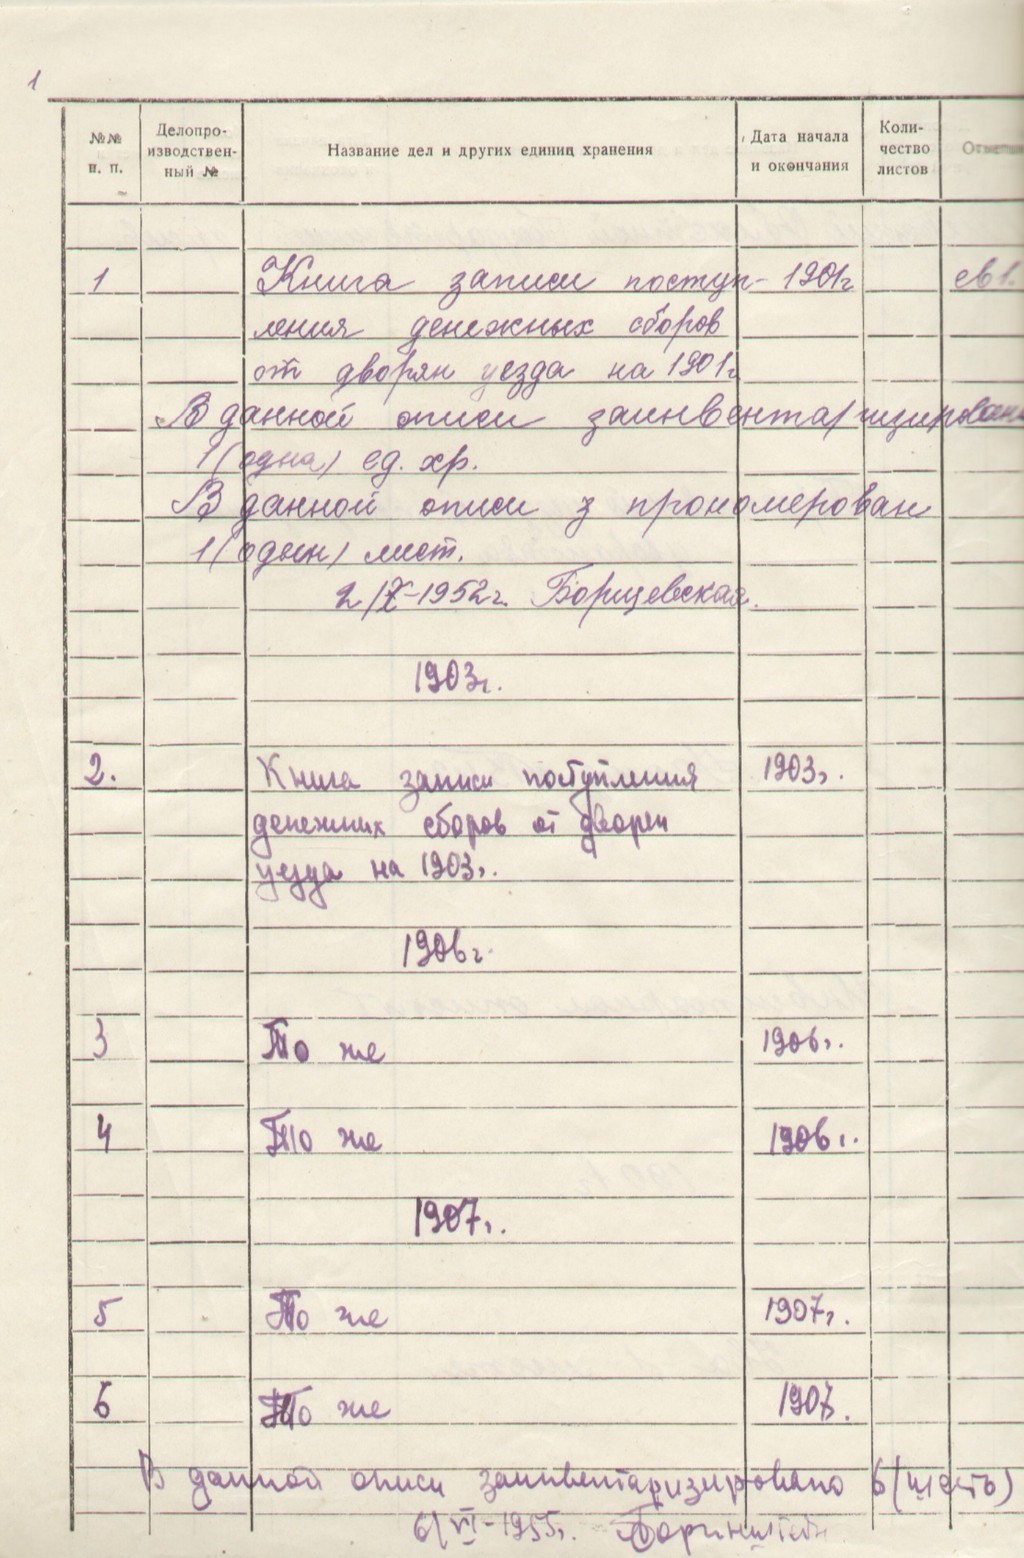 1
№№ п. п.
Делопро-
изводствен-
ный №
Название дел и других единиц хранения
Дата начала
и окончания
Коли-
чество
листов
1 Книга записи поступ- 1901г
ления денежных сборов
от дворян уезда на 1901г
В данной описи заинвентаризирован
1 (одна) ед. хр.
В данной описи з прономерован
1 (один) лист.
2/X-1952г. Борщевская.
1903г.
2. Книга записи поступления 1903г.
денежних сборов от дворен
уезда на 1903г.
1906г.
3 То же 1906г.
4 То же 1906г.
1907г.
5 То же 1907г.
6 То же 1907.
В данной описи заинвентаризировано 6 (шесть)
6/VI-1955г.